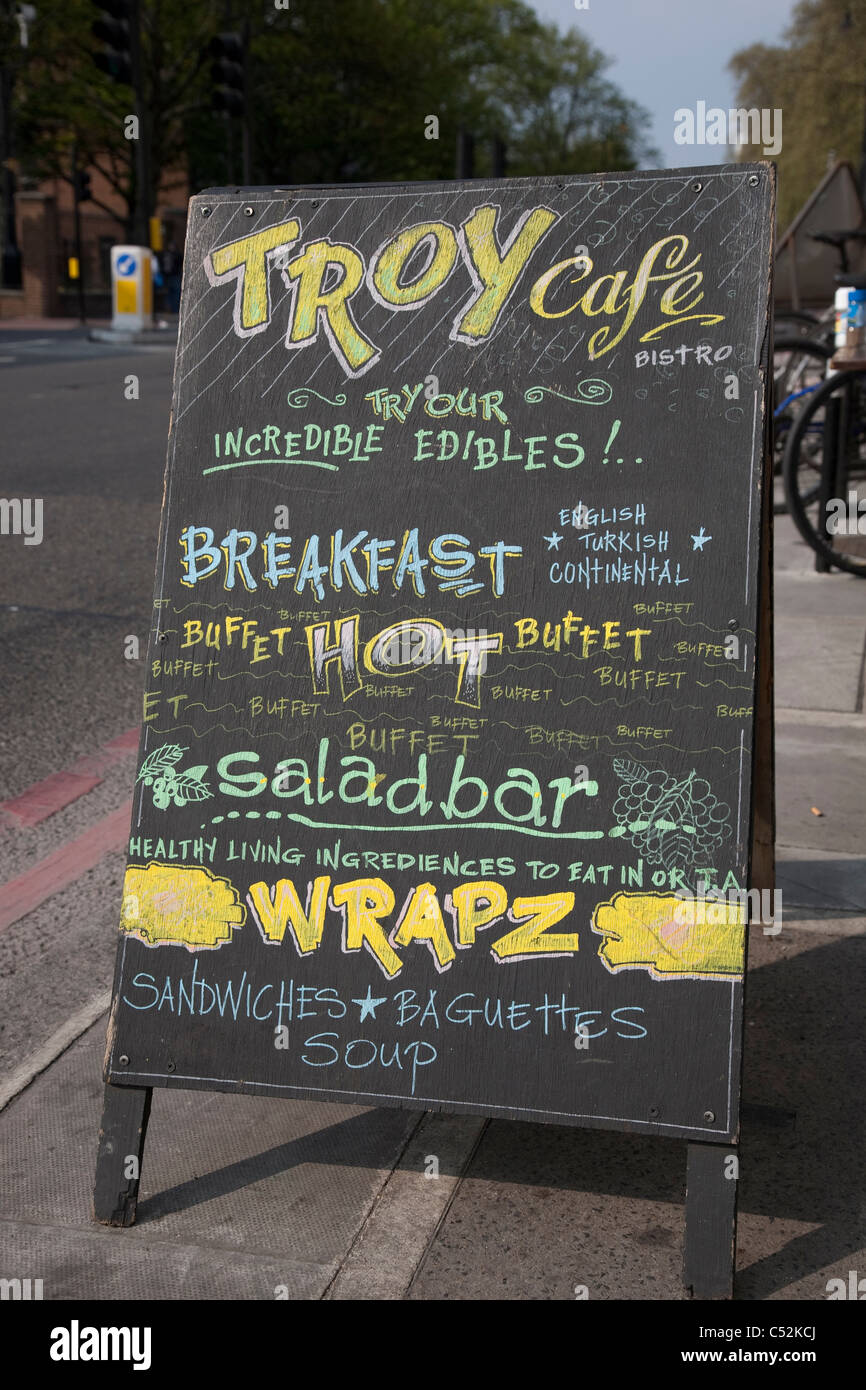 TROY Cafe
BISTRO
TRY OUR
INCREDIBLE EDIBLES!..
BREAKFAST
ENGLISH
★ TURKISH ★
CONTINENTAL
BUFFET BUFFET
BUFFET HOT BUFFET
BUFFET BUFFET BUFFET BUFFET
BUFFET BUFFET BUFFET BUFFET
BUFFET BUFFET
saladbar
HEALTHY LIVING INGREDIENCES TO EAT IN OR T.A
WRAPZ
SANDWICHES ★ BAGUETTES
SOUP
alamy
Image ID: C52KCJ
www.alamy.com